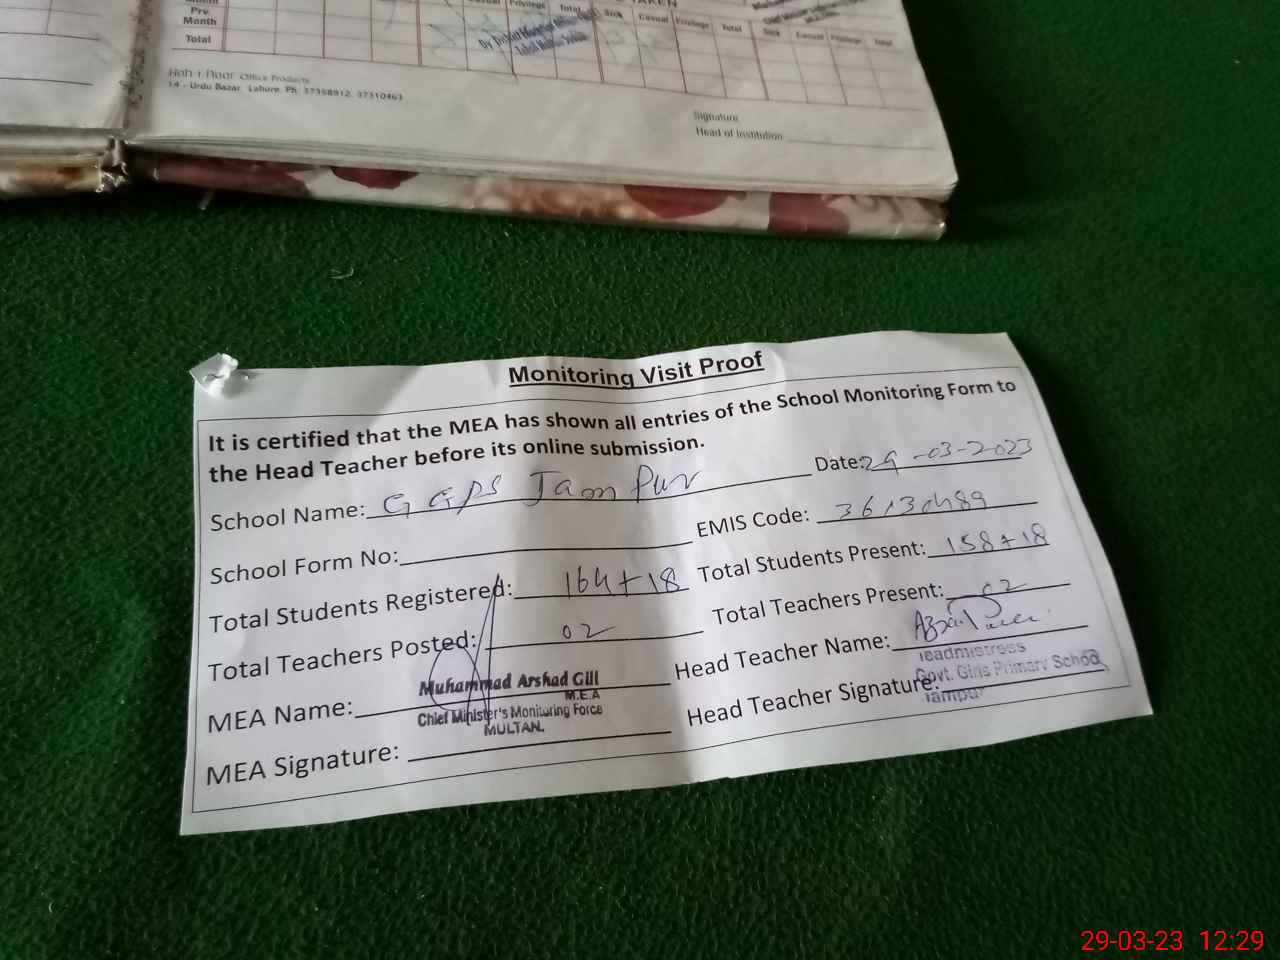 Pre. Month
Casual Privilege Total Sick Casual Privilege Total Sick Casual Privilege Total
Total
Office Products
14 - Urdu Bazar, Lahore. Ph: 37358912, 37310463
Signature
Head of Institution
Monitoring Visit Proof
It is certified that the MEA has shown all entries of the School Monitoring Form to
the Head Teacher before its online submission.
School Name: G GPS Jam Pur Date: 29-03-2023
School Form No: EMIS Code:
Total Students Registered: 164+18 Total Students Present: 158+18
Total Teachers Posted: 02 Total Teachers Present: 02
MEA Name: Muhammad Arshad Gill Head Teacher Name:
M.E.A
Chief Minister's Monitoring Force
MULTAN.
MEA Signature: Head Teacher Signature:
Govt. Girls Primary School
29-03-23 12:29